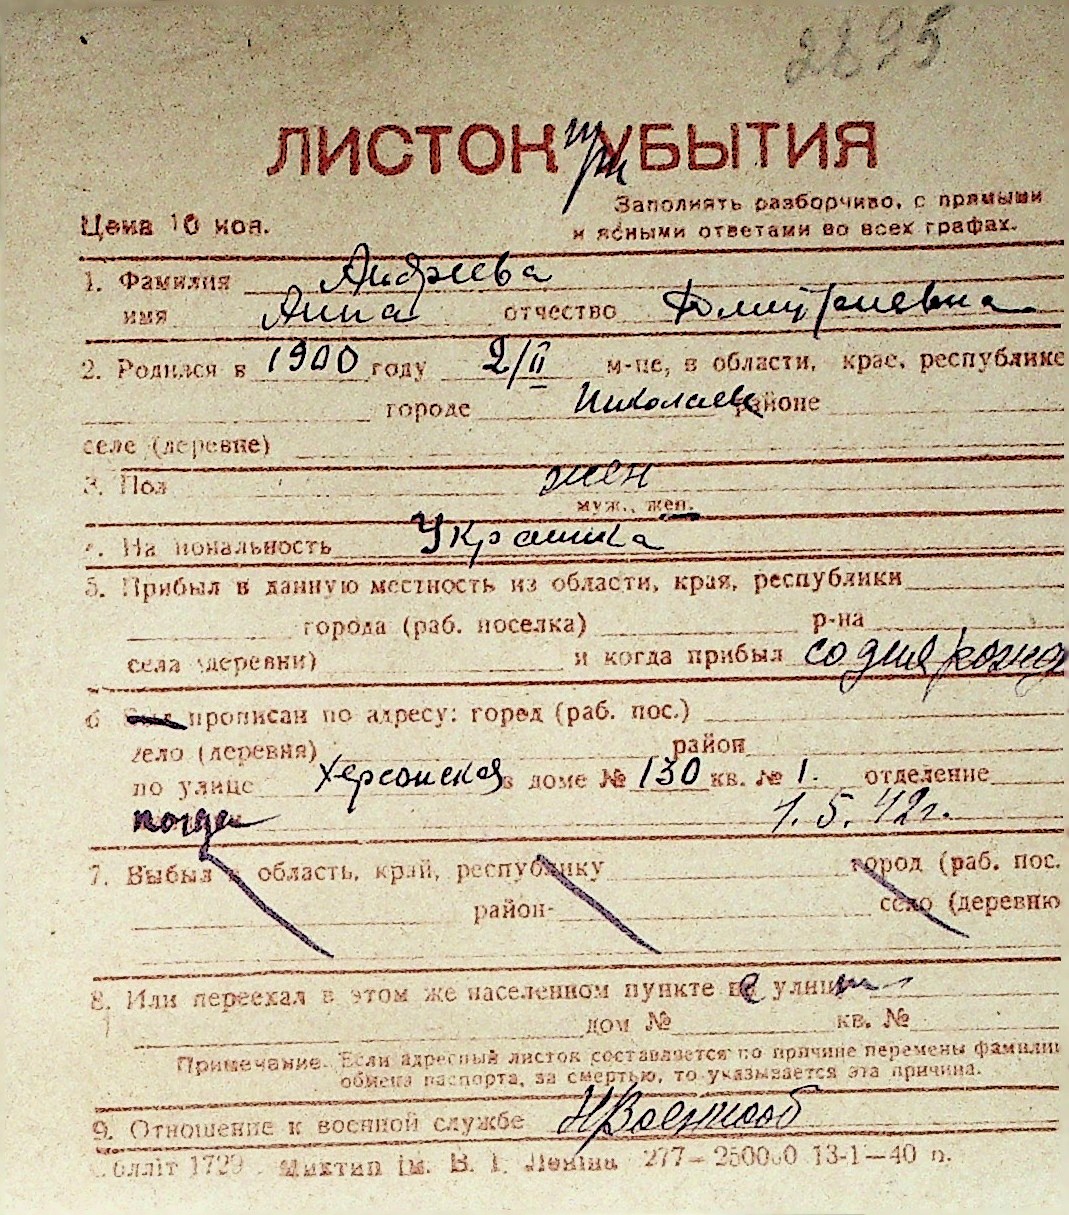 2895
ЛИСТОК при УБЫТИЯ
Цена 10 коп.
Заполнять разборчиво, с прямыми
и ясными ответами во всех графах.
1. Фамилия Андреева
имя Анна отчество Дмитриевна
2. Родился в 1900 году 2/II м-це, в области, крае, республике
городе Николаев районе
селе (деревне)
3. Пол жен
муж., жен.
4. Национальность Украинка
5. Прибыл в данную местность из области, края, республики
города (раб. поселка) р-на
села (деревни) и когда прибыл со дня рожд
6 Был прописан по адресу: город (раб. пос.)
село (деревня) район
по улице Херсонская в доме № 130 кв. № 1. отделение
1.5.42г.
7. Выбыл в область, край, республику город (раб. пос.
район село (деревню
8. Или переехал в этом же населенном пункте на улицу
дом № кв. №
Примечание. Если адресный листок составляется по причине перемены фамилии
обмена паспорта, за смертью, то указывается эта причина.
9. Отношение к военной службе Н/Военнооб
Обллiт 1729. Миктип iм. В. I. Ленiна 277—250000 13-1—40 р.